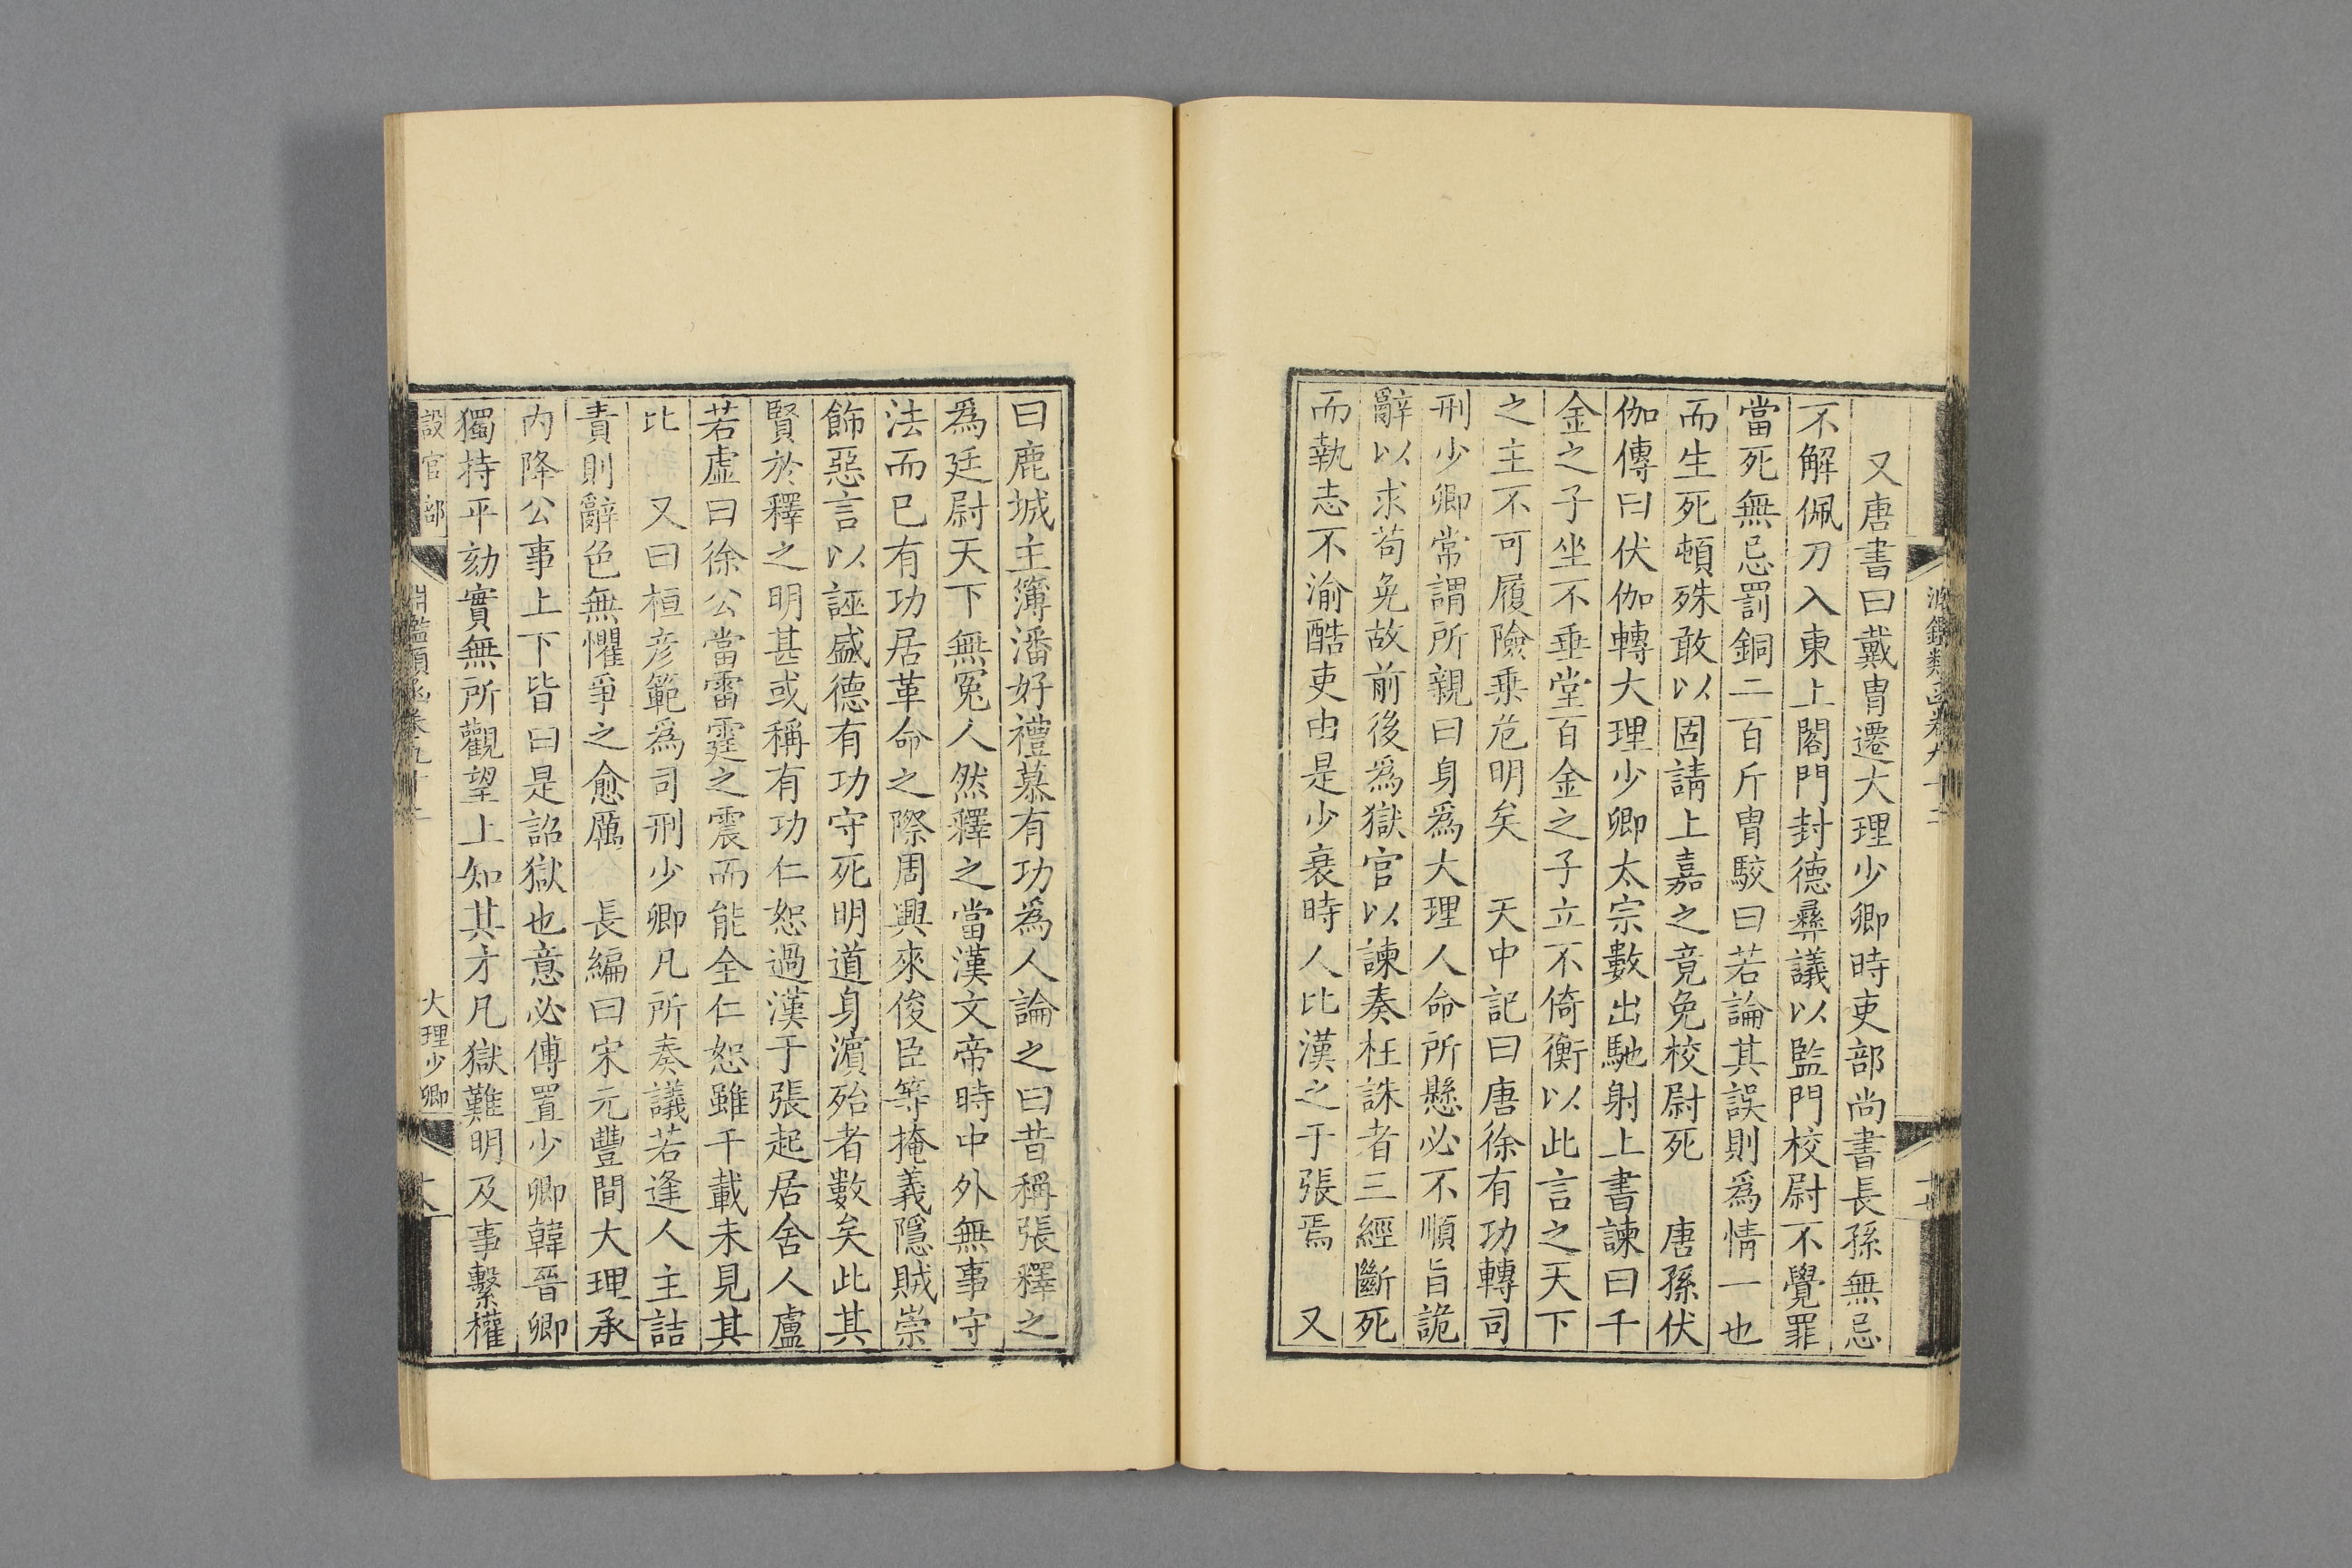 又唐書曰戴胄遷大理少卿時吏部尚書長孫無忌
不解佩刀入東上閤門封德彝議以監門校尉不覺罪
當死無忌罰銅二百斤胄駮曰若論其誤則爲情一也
而生死頓殊敢以固請上嘉之竟免校尉死　唐孫伏
伽傳曰伏伽轉大理少卿太宗數出馳射上書諫曰千
金之子坐不垂堂百金之子立不倚衡以此言之天下
之主不可履險乗危明矣　天中記曰唐徐有功轉司
刑少卿常謂所親曰身爲大理人命所懸必不順旨詭
辭以求苟免故前後爲獄官以諫奏枉誅者三經斷死
而執志不渝酷吏由是少衰時人比漢之于張焉　又
曰鹿城主簿潘好禮慕有功爲人論之曰昔稱張釋之
爲廷尉天下無冤人然釋之當漢文帝時中外無事守
法而已有功居革命之際周興來俊臣等掩義隱賊崇
飾惡言以誣盛德有功守死明道身濵殆者數矣此其
賢於釋之明甚或稱有功仁恕過漢于張起居舍人盧
若虛曰徐公當雷霆之震而能全仁恕雖千載未見其
比　又曰桓彦範爲司刑少卿凡所奏議若逢人主詰
責則辭色無懼爭之愈厲　長編曰宋元豐間大理承
内降公事上下皆曰是詔獄也意必傅置少卿韓晉卿
獨持平劾實無所觀望上知其才凡獄難明及事繫權
設官部
大理少卿